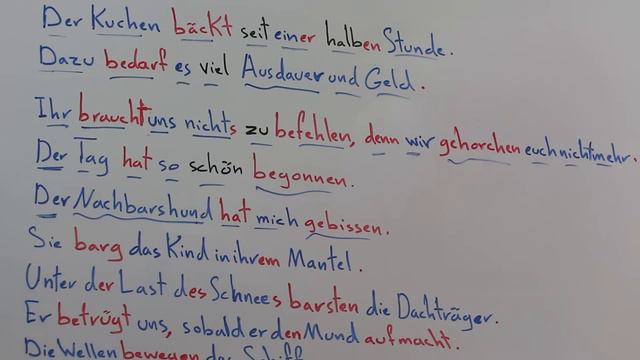 Der Kuchen bäckt seit einer halben Stunde.
Dazu bedarf es viel Ausdauer und Geld.
Ihr braucht uns nichts zu befehlen, denn wir gehorchen euch nicht mehr.
Der Tag hat so schön begonnen.
Der Nachbarshund hat mich gebissen.
Sie barg das Kind in ihrem Mantel.
Unter der Last des Schnees barsten die Dachträger.
Er betrügt uns, sobald er den Mund aufmacht.
Die Wellen bewegen das Schiff